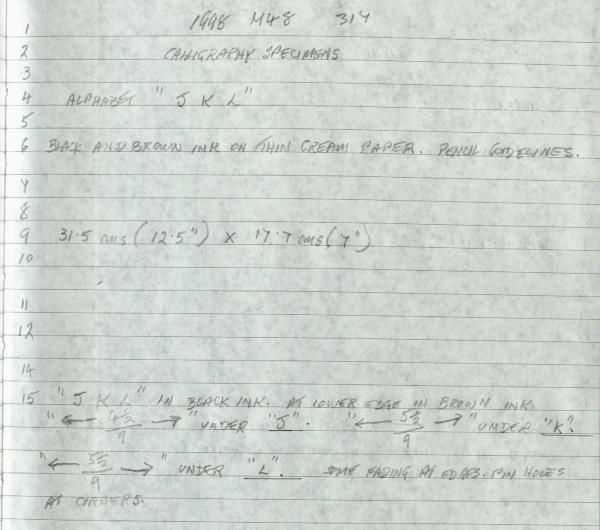 1998 M48 314
1
2 CALLIGRAPHY SPECIMENS
3
4 ALPHABET " J K L"
5
6 BLACK AND BROWN INK ON THIN CREAM PAPER. PENCIL GUIDELINES.
7
8
9 31.5 cms (12.5") x 17.7 cms (7")
10
11
12
14
15 "J K L" IN BLACK INK. AT LOWER EDGE IN BROWN INK
"← 4½/9 →" UNDER "J". "← 5½/9 →" UNDER "K".
"← 5½/9 →" UNDER "L". SOME FADING AT EDGES. PIN HOLES
AT CORNERS.